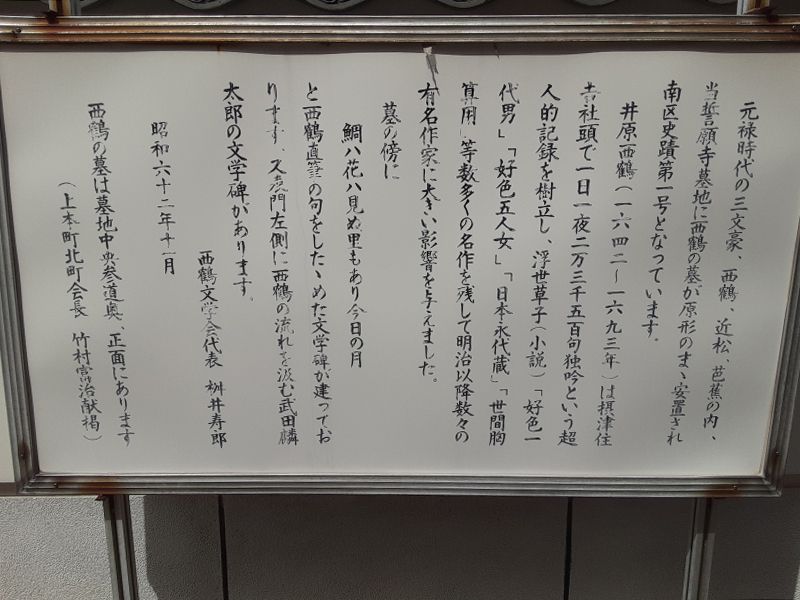 元禄時代の三文豪、西鶴、近松、芭蕉の内、
当誓願寺墓地に西鶴の墓が原形のまゝ安置され
南区史蹟第一号となっています。
井原西鶴(一六四二〜一六九三年)は摂津住
吉社頭で一日一夜二万三千五百句独吟という超
人的記録を樹立し、浮世草子(小説)「好色一
代男」「好色五人女」「日本永代蔵」「世間胸
算用」等数多くの名作を残して明治以降数々の
有名作家に大きい影響を与えました。
墓の傍に
鯛ハ花ハ見ぬ里もあり今日の月
と西鶴直筆の句をしたゝめた文学碑が建ってお
ります、又表門左側に西鶴の流れを汲む武田麟
太郎の文学碑があります。
西鶴文学会代表 桝井寿郎
昭和六十二年十一月
西鶴の墓は墓地中央参道奥、正面にあります
(上本町北町会長 竹村富治献褐)